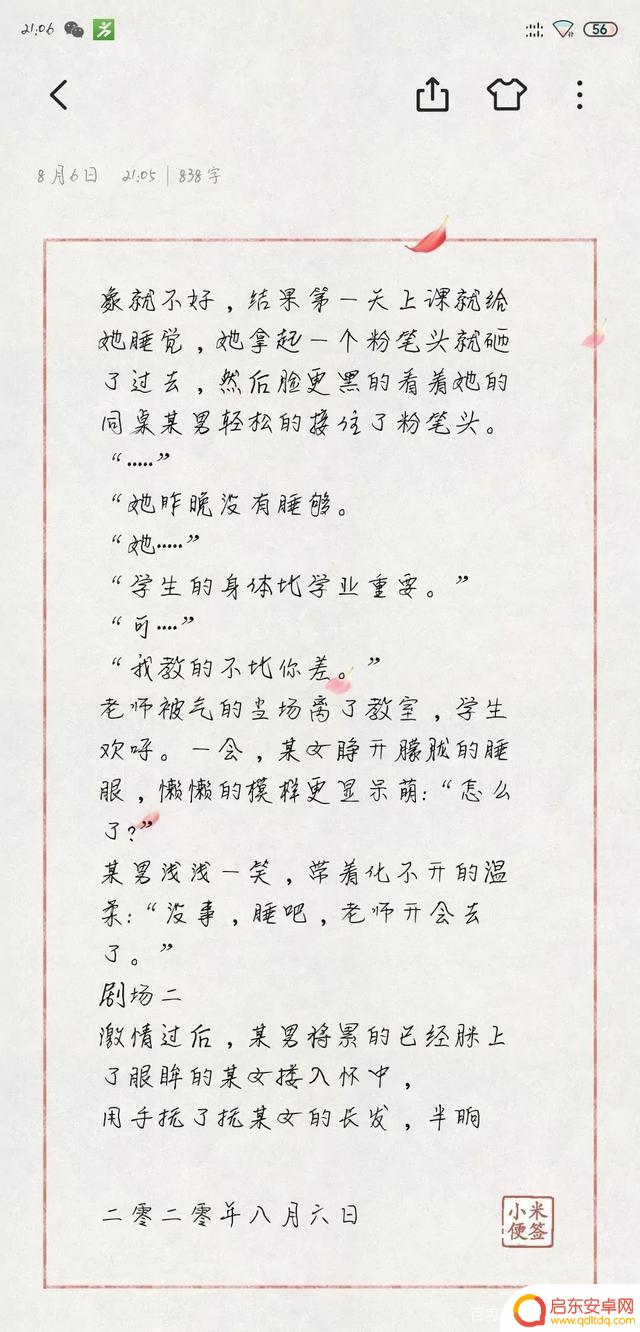 21:06
56
8月6日 21:05 | 838字
象就不好，结果第一天上课就给
她睡觉，她拿起一个粉笔头就砸
了过去，然后脸更黑的看着她的
同桌某男轻松的接住了粉笔头。
“·····”
“她昨晚没有睡够。
“她·····”
“学生的身体比学业重要。”
“可····”
“我教的不比你差。”
老师被气的当场离了教室，学生
欢呼。一会，某女睁开朦胧的睡
眼，懒懒的模样更显呆萌:“怎么
了?”
某男浅浅一笑，带着化不开的温
柔:“没事，睡吧，老师开会去
了。”
剧场二
激情过后，某男将累的已经眯上
了眼眸的某女搂入怀中，
用手抚了抚某女的长发，半晌
二零二零年八月六日
小米
便签
启东安卓网
www.qdltdq.com